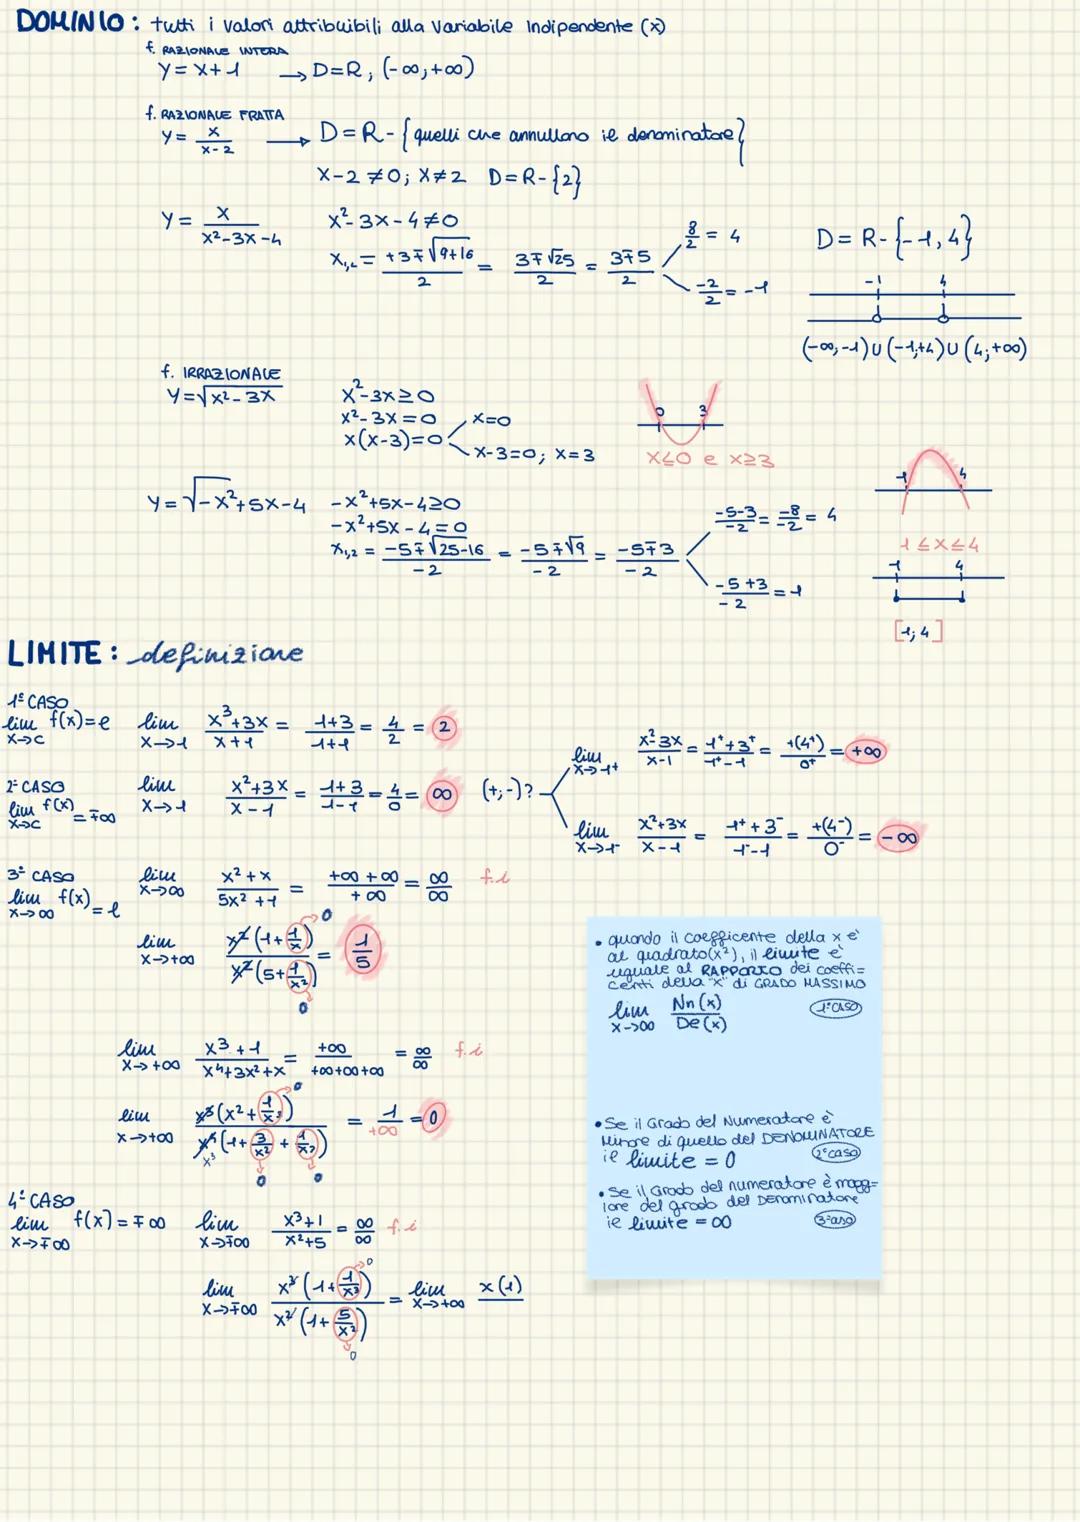 DOMINIO: tutti i valori attribuibili alla variabile Indipendente (x)
f. RAZIONALE INTERA
y = x+1 → D=R; (-∞;+∞)
f. RAZIONALE FRATTA
y = x/(x-2) → D = R - {quelli che annullano il denominatore}
x-2 ≠ 0; x≠2 D=R-{2}
y = x/(x²-3x-4) x²-3x-4≠0
x₁,₂ = (+3∓√(9+16))/2 = (3∓√25)/2 = (3∓5)/2
8/2 = 4
-2/2 = -1
D = R-{-1,4}
-1 4
(-∞;-1)U(-1;+4)U(4;+∞)
f. IRRAZIONALE
y=√(x²-3x) x²-3x≥0
x²-3x=0 x=0
x(x-3)=0 x-3=0; x=3
0 3
x≤0 e x≥3
y=√(-x²+5x-4) -x²+5x-4≥0
-x²+5x-4=0
x₁,₂ = (-5∓√(25-16))/-2 = (-5∓√9)/-2 = (-5∓3)/-2
(-5-3)/-2 = -8/-2 = 4
(-5+3)/-2 = 1
1 4
1≤x≤4
1 4
[1;4]
LIMITE: definizione
1° CASO
lim x→c f(x)=e lim x→1 (x³+3x)/(x+1) = (1+3)/(1+1) = 4/2 = 2
2° CASO
lim x→c f(x) = ∓∞ lim x→1 (x²+3x)/(x-1) = (1+3)/(1-1) = 4/0 = ∞ (+;-)?
lim x→1⁺ (x²-3x)/(x-1) = (1⁺+3⁺)/(1⁺-1) = +(4⁺)/0⁺ = +∞
lim x→1⁻ (x²+3x)/(x-1) = (1⁺+3⁻)/(1⁻-1) = +(4⁻)/0⁻ = -∞
3° CASO
lim x→∞ f(x) = l lim x→∞ (x²+x)/(5x²+1) = (+∞+∞)/+∞ = ∞/∞ f.i
lim x→+∞ x²(1+1/x)/x²(5+1/x²) = 1/5
0
0
lim x→+∞ (x³+1)/(x⁴+3x²+x) = +∞/(+∞+∞+∞) = ∞/∞ f.i
lim x→+∞ x³(x²+1/x³)/x⁴(1+3/x²+1/x³) = 1/+∞ = 0
0
x³
0 0
• quando il coefficente della x e'
al quadrato (x²), il limite e'
uguale al RAPPORTO dei coeffi=
centi della "x" di GRADO MASSIMO
lim x→∞ Nn(x)/De(x) 1°CASO
• Se il Grado del Numeratore è
Minore di quello del DENOMINATORE
il limite = 0 2°caso
• Se il Grado del numeratore è magg=
iore del grado del Denominatore
il limite = ∞ 3°caso
4° CASO
lim x→∓∞ f(x) = ∓∞ lim x→∓∞ (x³+1)/(x²+5) = ∞/∞ f.i
lim x→∓∞ x³(1+1/x³)/x²(1+5/x²) = lim x→+∞ x(1)
0
0